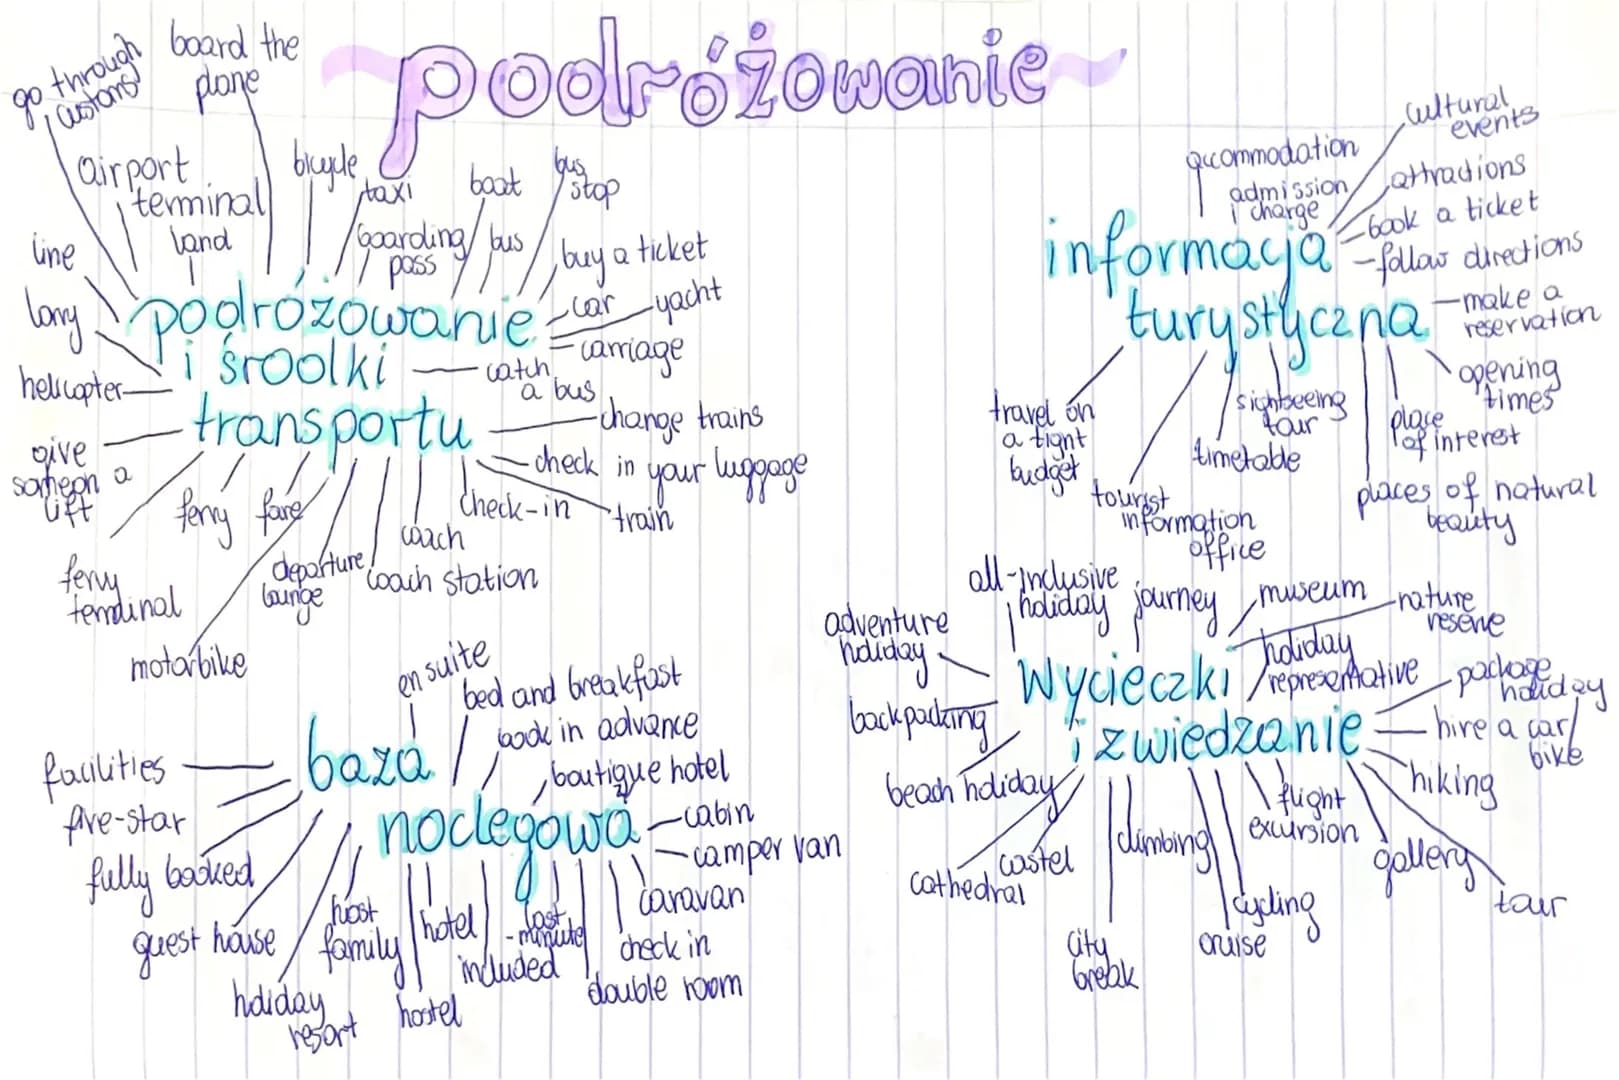 podróżowanie
go through
customs
board the
plane
airport
terminal
land
bicycle
taxi
boarding
pass
boat
bus
bus
stop
buy a ticket
car
yacht
carriage
line
lorry
helicopter
give
someon a
lift
podróżowanie
i środki
transportu
catch
a bus
change trains
check in your luggage
train
check-in
coach
coach station
departure
lounge
fare
ferry
ferry
terminal
motorbike
informacja
turystyczna
accommodation
admission
charge
cultural
events
attractions
book a ticket
follow directions
make a
reservation
opening
times
place
of interest
places of natural
beauty
sightseeing
tour
timetable
tourist
information
office
travel on
a tight
budget
baza
noclegowa
en suite
bed and breakfast
book in advance
boutique hotel
cabin
camper van
caravan
check in
double room
last
-minute
included
hotel
hostel
host
family
holiday
resort
guest house
fully booked
five-star
facilities
wycieczki
i zwiedzanie
adventure
holiday
all-inclusive
holiday
journey
museum
nature
reserve
holiday
representative
package
holiday
hire a car/
bike
hiking
tour
gallery
flight
excursion
cycling
cruise
climbing
city
break
castel
cathedral
beach holiday
backpacking